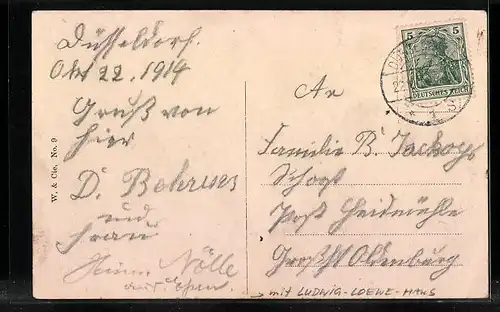 Düsseldorf.
Okt 22. 1914
Gruß von
hier
D. Behrens
und
Frau
Nölle
W. & Cie. No. 9
5 5
DEUTSCHES REICH
An
Familie B.
Schost
Post Heidmühle
Großht Oldenburg
→ mit LUDWIG-LOEWE-HAUS